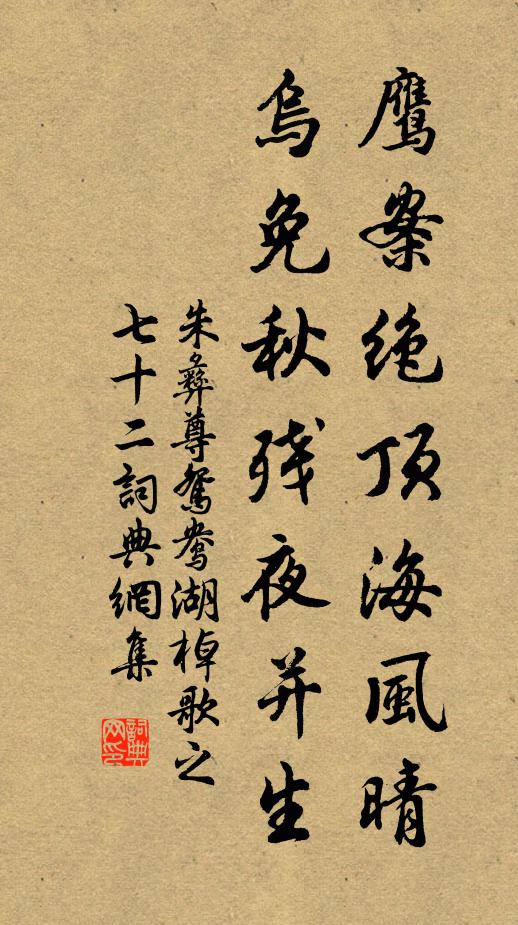 鷹窠绝顶海風晴
烏兔秋残夜并生
朱彝尊鴛鴦湖棹歌之
七十二詞典網集
詞典网印